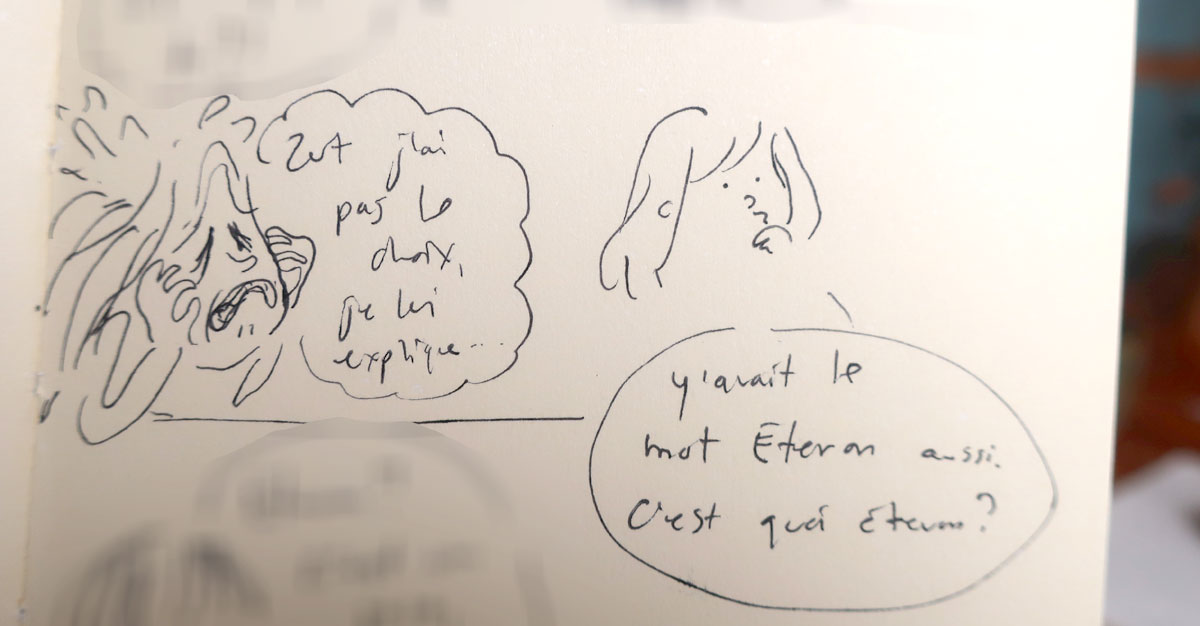 Zut j'ai
pas le
choix,
je lui
explique...
y'avait le
mot Eteron aussi.
C'est quoi éteron?